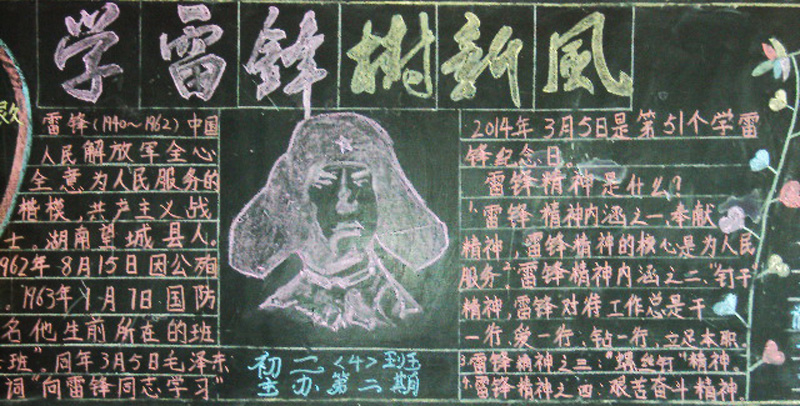 学雷锋树新風
雷锋(1940~1962)中国
人民解放军全心
全意为人民服务的
楷模,共产主义战
士。湖南望城县人。
962年8月15日因公殉
。1963年1月7日国防
名他生前所在的班
班”。同年3月5日毛泽东
词“向雷锋同志学习”
初二<4>班
主办第二期
2014年3月5日是第51个学雷
锋纪念日。
雷锋精神是什么?
1.雷锋精神内涵之一:奉献
精神,雷锋精神的核心是为人民
服务。2.雷锋精神内涵之二:“钉子
精神,雷锋对待工作总是干
一行、爱一行、钻一行,立足本职,
3.雷锋精神之三:“螺丝钉”精神。
4.雷锋精神之四:艰苦奋斗精神。